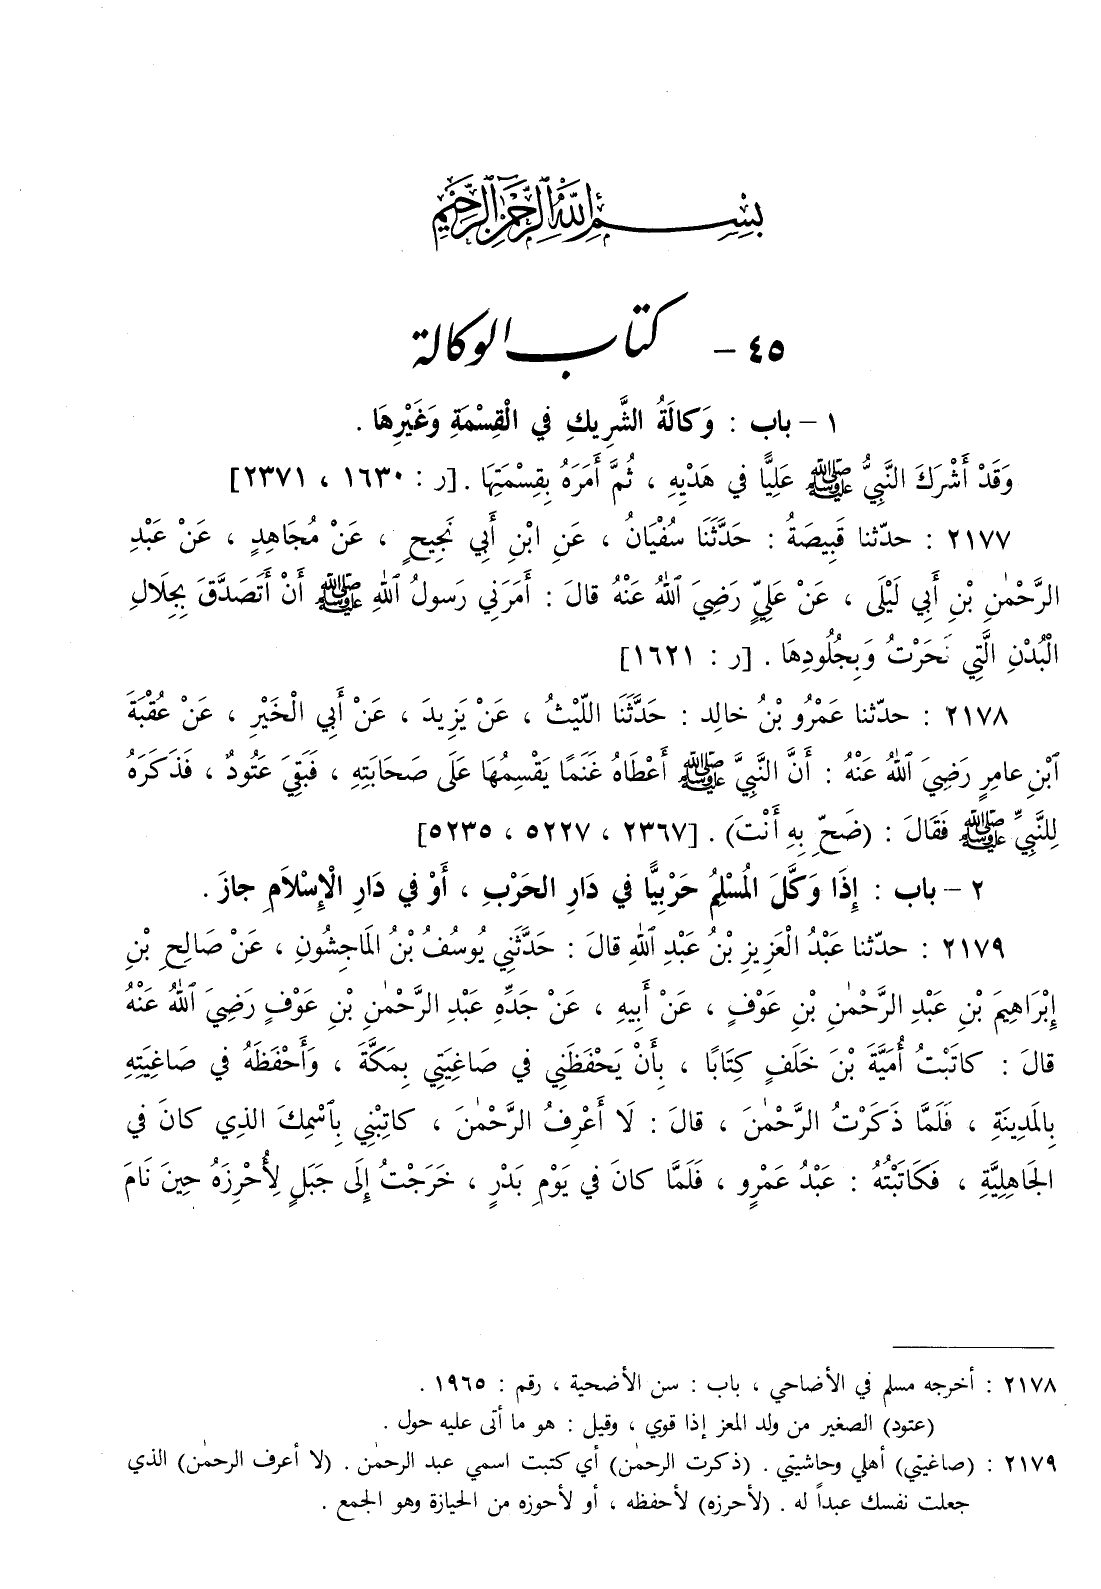 بِسْمِ اللهِ الرَّحْمٰنِ الرَّحِيمِ
٤٥ - كتاب الوكالة
١ - باب : وَكالَةُ الشَّرِيكِ في الْقِسْمَةِ وَغَيْرِهَا .
وَقَدْ أَشْرَكَ النَّبِيُّ ﷺ عَلِيًّا في هَدْيِهِ ، ثُمَّ أَمَرَهُ بِقِسْمَتِهَا . [ر : ١٦٣٠ ، ٢٣٧١]
٢١٧٧ : حدّثنا قَبِيصَةُ : حَدَّثَنَا سُفْيَانُ ، عَنِ ابْنِ أَبِي نَجِيحٍ ، عَنْ مُجَاهِدٍ ، عَنْ عَبْدِ
الرَّحْمٰنِ بْنِ أَبِي لَيْلَى ، عَنْ عَلِيٍّ رَضِيَ ٱللهُ عَنْهُ قالَ : أَمَرَنِي رَسولُ ٱللهِ ﷺ أَنْ أَتَصَدَّقَ بِجِلَالِ
الْبُدْنِ الَّتِي نَحَرْتُ وَبِجُلُودِهَا . [ر : ١٦٢١]
٢١٧٨ : حدّثنا عَمْرُو بْنُ خالِد : حَدَّثَنَا اللَّيْثُ ، عَنْ يَزِيدَ ، عَنْ أَبِي الْخَيْرِ ، عَنْ عُقْبَةَ
ٱبْنِ عامِرٍ رَضِيَ ٱللهُ عَنْهُ : أَنَّ النَّبِيَّ ﷺ أَعْطَاهُ غَنَمًا يَقْسِمُهَا عَلَى صَحَابَتِهِ ، فَبَقِيَ عَتُودٌ ، فَذَكَرَهُ
لِلنَّبِيِّ ﷺ فَقَالَ : (ضَحِّ بِهِ أَنْتَ) . [٢٣٦٧ ، ٥٢٢٧ ، ٥٢٣٥]
٢ - باب : إِذَا وَكَّلَ الْمُسْلِمُ حَرْبِيًّا في دَارِ الحَرْبِ ، أَوْ في دَارِ الْإِسْلَامِ جازَ .
٢١٧٩ : حدّثنا عَبْدُ الْعَزِيزِ بْنُ عَبْدِ ٱللهِ قالَ : حَدَّثَنِي يُوسُفُ بْنُ المَاجِشُونِ ، عَنْ صَالِحِ بْنِ
إِبْرَاهِيمَ بْنِ عَبْدِ الرَّحْمٰنِ بْنِ عَوْفٍ ، عَنْ أَبِيهِ ، عَنْ جَدِّهِ عَبْدِ الرَّحْمٰنِ بْنِ عَوْفٍ رَضِيَ ٱللهُ عَنْهُ
قالَ : كاتَبْتُ أُمَيَّةَ بْنَ خَلَفٍ كِتَابًا ، بِأَنْ يَحْفَظَنِي في صَاغِيَتِي بِمَكَّةَ ، وَأَحْفَظَهُ في صَاغِيَتِهِ
بِالمَدِينَةِ ، فَلَمَّا ذَكَرْتُ الرَّحْمٰنَ ، قالَ : لَا أَعْرِفُ الرَّحْمٰنَ ، كاتِبْنِي بِٱسْمِكَ الذِي كانَ في
الجَاهِلِيَّةِ ، فَكَاتَبْتُهُ : عَبْدُ عَمْرٍو ، فَلَمَّا كانَ في يَوْمِ بَدْرٍ ، خَرَجْتُ إِلَى جَبَلٍ لِأُحْرِزَهُ حِينَ نَامَ
٢١٧٨ : أخرجه مسلم في الأضاحي ، باب : سن الأضحية ، رقم : ١٩٦٥ .
(عتود) الصغير من ولد المعز إذا قوي ، وقيل : هو ما أتى عليه حول .
٢١٧٩ : (صاغيتي) أهلي وحاشيتي . (ذكرت الرحمٰن) أي كتبت اسمي عبد الرحمٰن . (لا أعرف الرحمٰن) الذي
جعلت نفسك عبداً له . (لأحرزه) لأحفظه ، أو لأحوزه من الحيازة وهو الجمع .